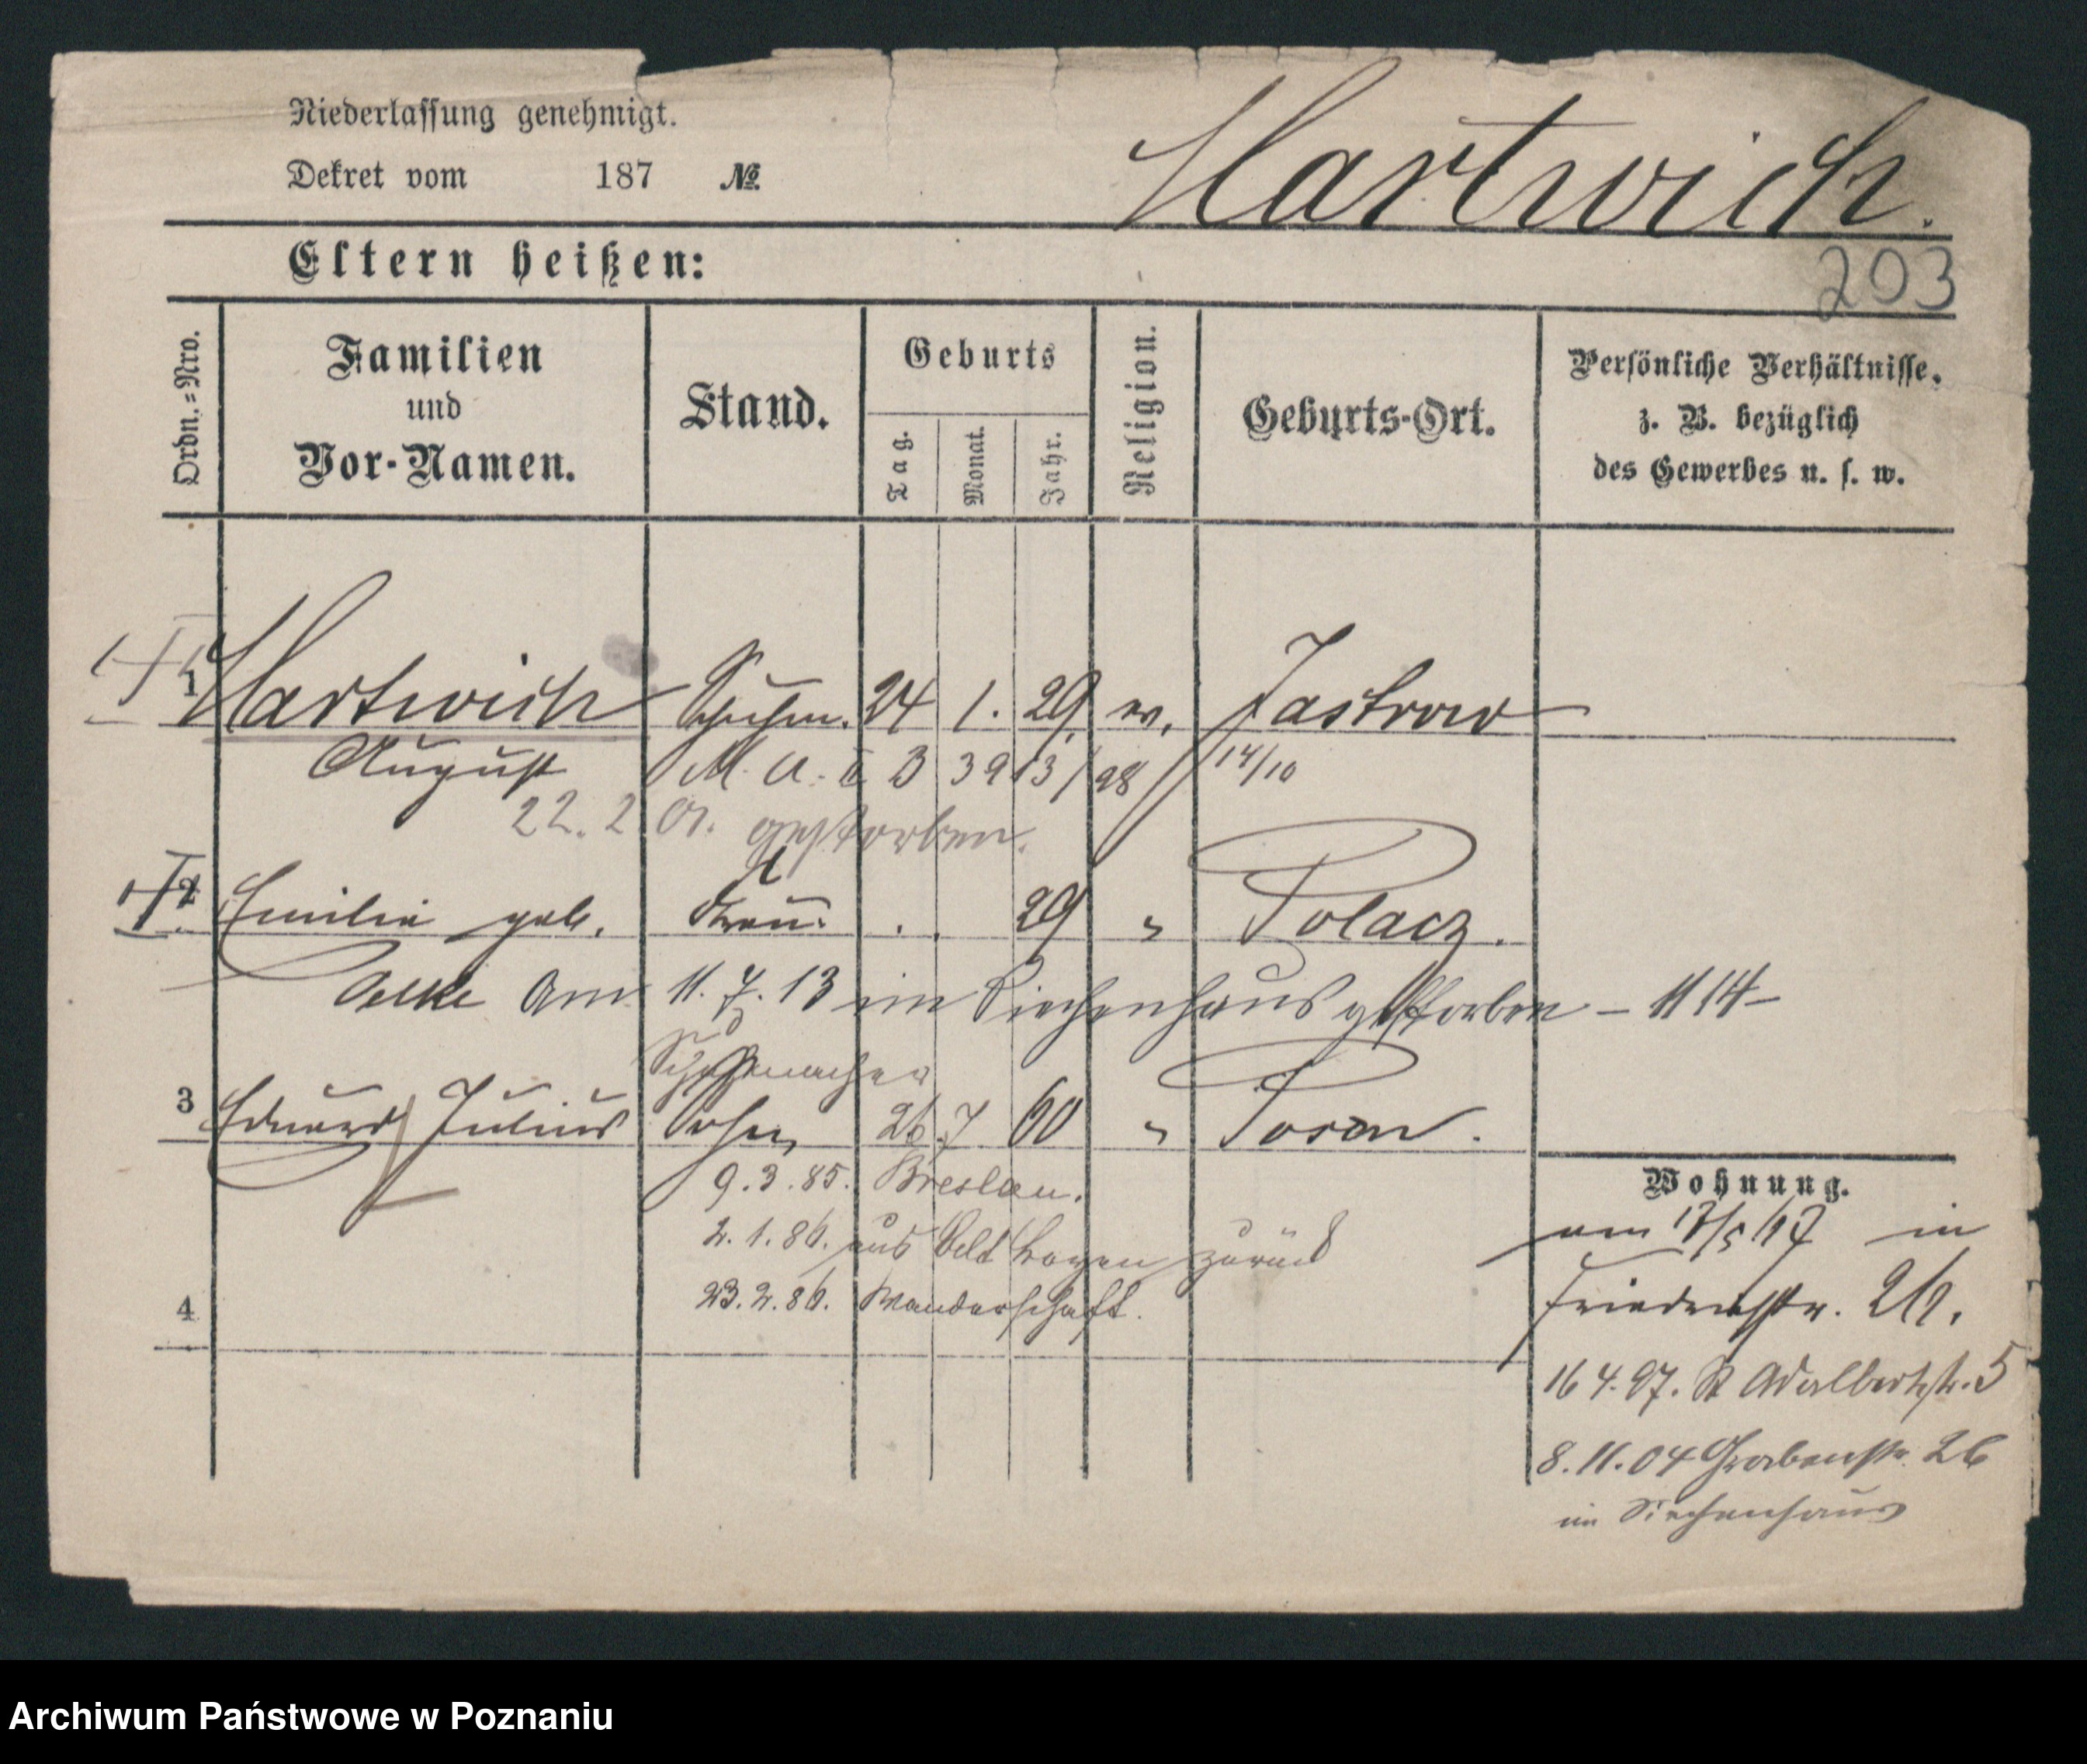 Niederlassung genehmigt.
Dekret vom 187 №
Hartwich.
203
Eltern heißen:
Ordn.=Nro.
Familien und Vor-Namen.
Stand.
Geburts
Tag.
Monat.
Jahr.
Religion.
Geburts-Ort.
Persönliche Verhältnisse, z. B. bezüglich des Gewerbes u. s. w.
1 Hartwich Schuhm. 24 1. 29. ev. Jastrow
August M. A. II B 3913/98 14/10
22. 2. 01. gestorben.
2 Emilie geb. Frau. 29 " Polacz.
am 11. 7. 13 im Siechenhaus gestorben – 1114 –
Schuhmacher
3 Eduard Julius Sohn 26 7 60 " Posen.
9. 3. 85. Breslau.
2. 1. 86. aus zurück
23. 2. 86. Wanderschaft.
4
Wohnung.
am in
26.
16 4. 97. St Adalbertstr. 5
8. 11. 04 Grabenstr. 26
im Siechenhaus
Archiwum Państwowe w Poznaniu